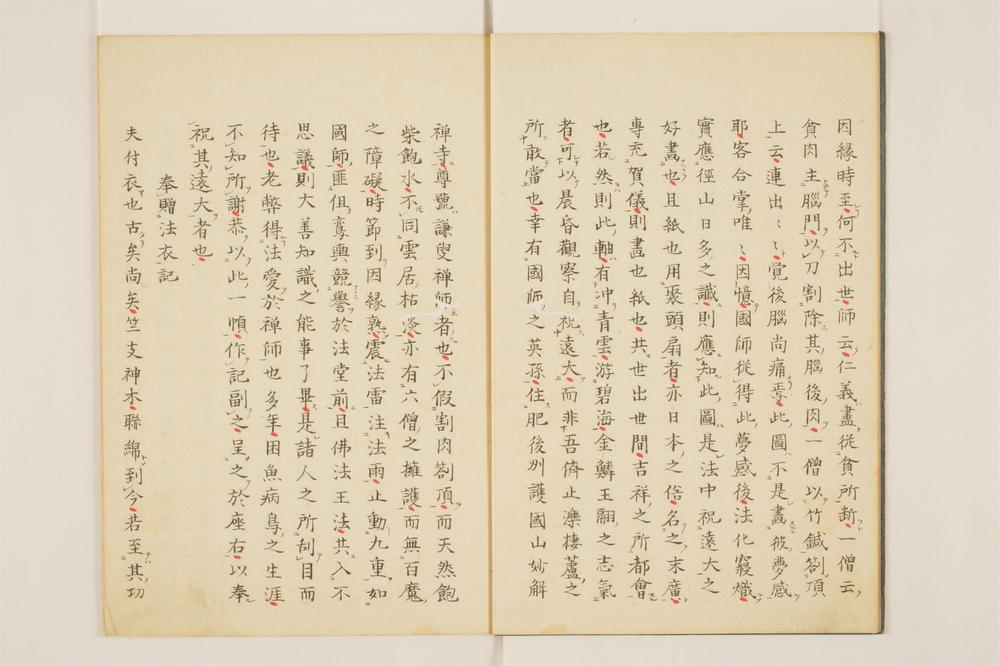 因縁時至何不出世師云仁義盡從貧所断一僧云
貪肉主腦門以刀割除其腦後肉一僧以竹鍼劄頂
上云連出〻〻覺後腦尚痛焉此圖不是畫彼夢感
耶客合掌唯〻因憶國師從得此夢感後法化寖熾
實應徑山日多之讖則應知此圖是法中祝遠大之
好畵也且紙也用聚頭扇者亦日本之俗名之末廣
專充賀儀則畵也紙也共世出世間吉祥之所都會
也若然則此軸有冲青雲游碧海金鱗王翮之志氣
者可以晨昏觀察自祝遠大而非吾儕止濼棲蘆之
所敢當也幸有國師之英孫住肥後州護國山妙解
禅寺尊號謙叟禅師者也不假割肉劄頂而天然飽
柴飽水不同雲居枯淡亦有六僧之擁護而無百魔
之障礙時節到因縁熟震法雷注法雨止動九重如
國師匪伹鸞輿競譽於法堂前且佛法王法共入不
思議則大善知識之能事了畢是諸人之所刮目而
待也老弊得法愛於禅師也多年困魚病鳥之生涯
不知所謝恭以此一幀作記副之呈之於座右以奉
祝其遠大者也
奉贈法衣記
夫付衣也古矣尚矣竺支神木聯綿到今若至其功